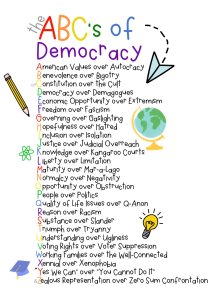 the
ABC's of
Democracy
American Values over Autocracy
Benevolence over Bigotry
Constitution over The Cult
Democracy over Demagogues
Economic Opportunity over Extremism
Freedom over Fascism
Governing over Gaslighting
Hopefulness over Hatred
Inclusion over Isolation
Justice over Judicial Overreach
Knowledge over Kangaroo Courts
Liberty over Limitation
Maturity over Mar-a-Lago
Normalcy over Negativity
Opportunity over Obstruction
People over Politics
Quality of Life Issues over Q-Anon
Reason over Racism
Substance over Slander
Triumph over Tyranny
Understanding over Ugliness
Voting Rights over Voter Suppression
Working Families over The Well-Connected
Xennial over Xenophobia
"Yes We Can" over "You Cannot Do It"
Zealous Representation over Zero Sum Confrontation